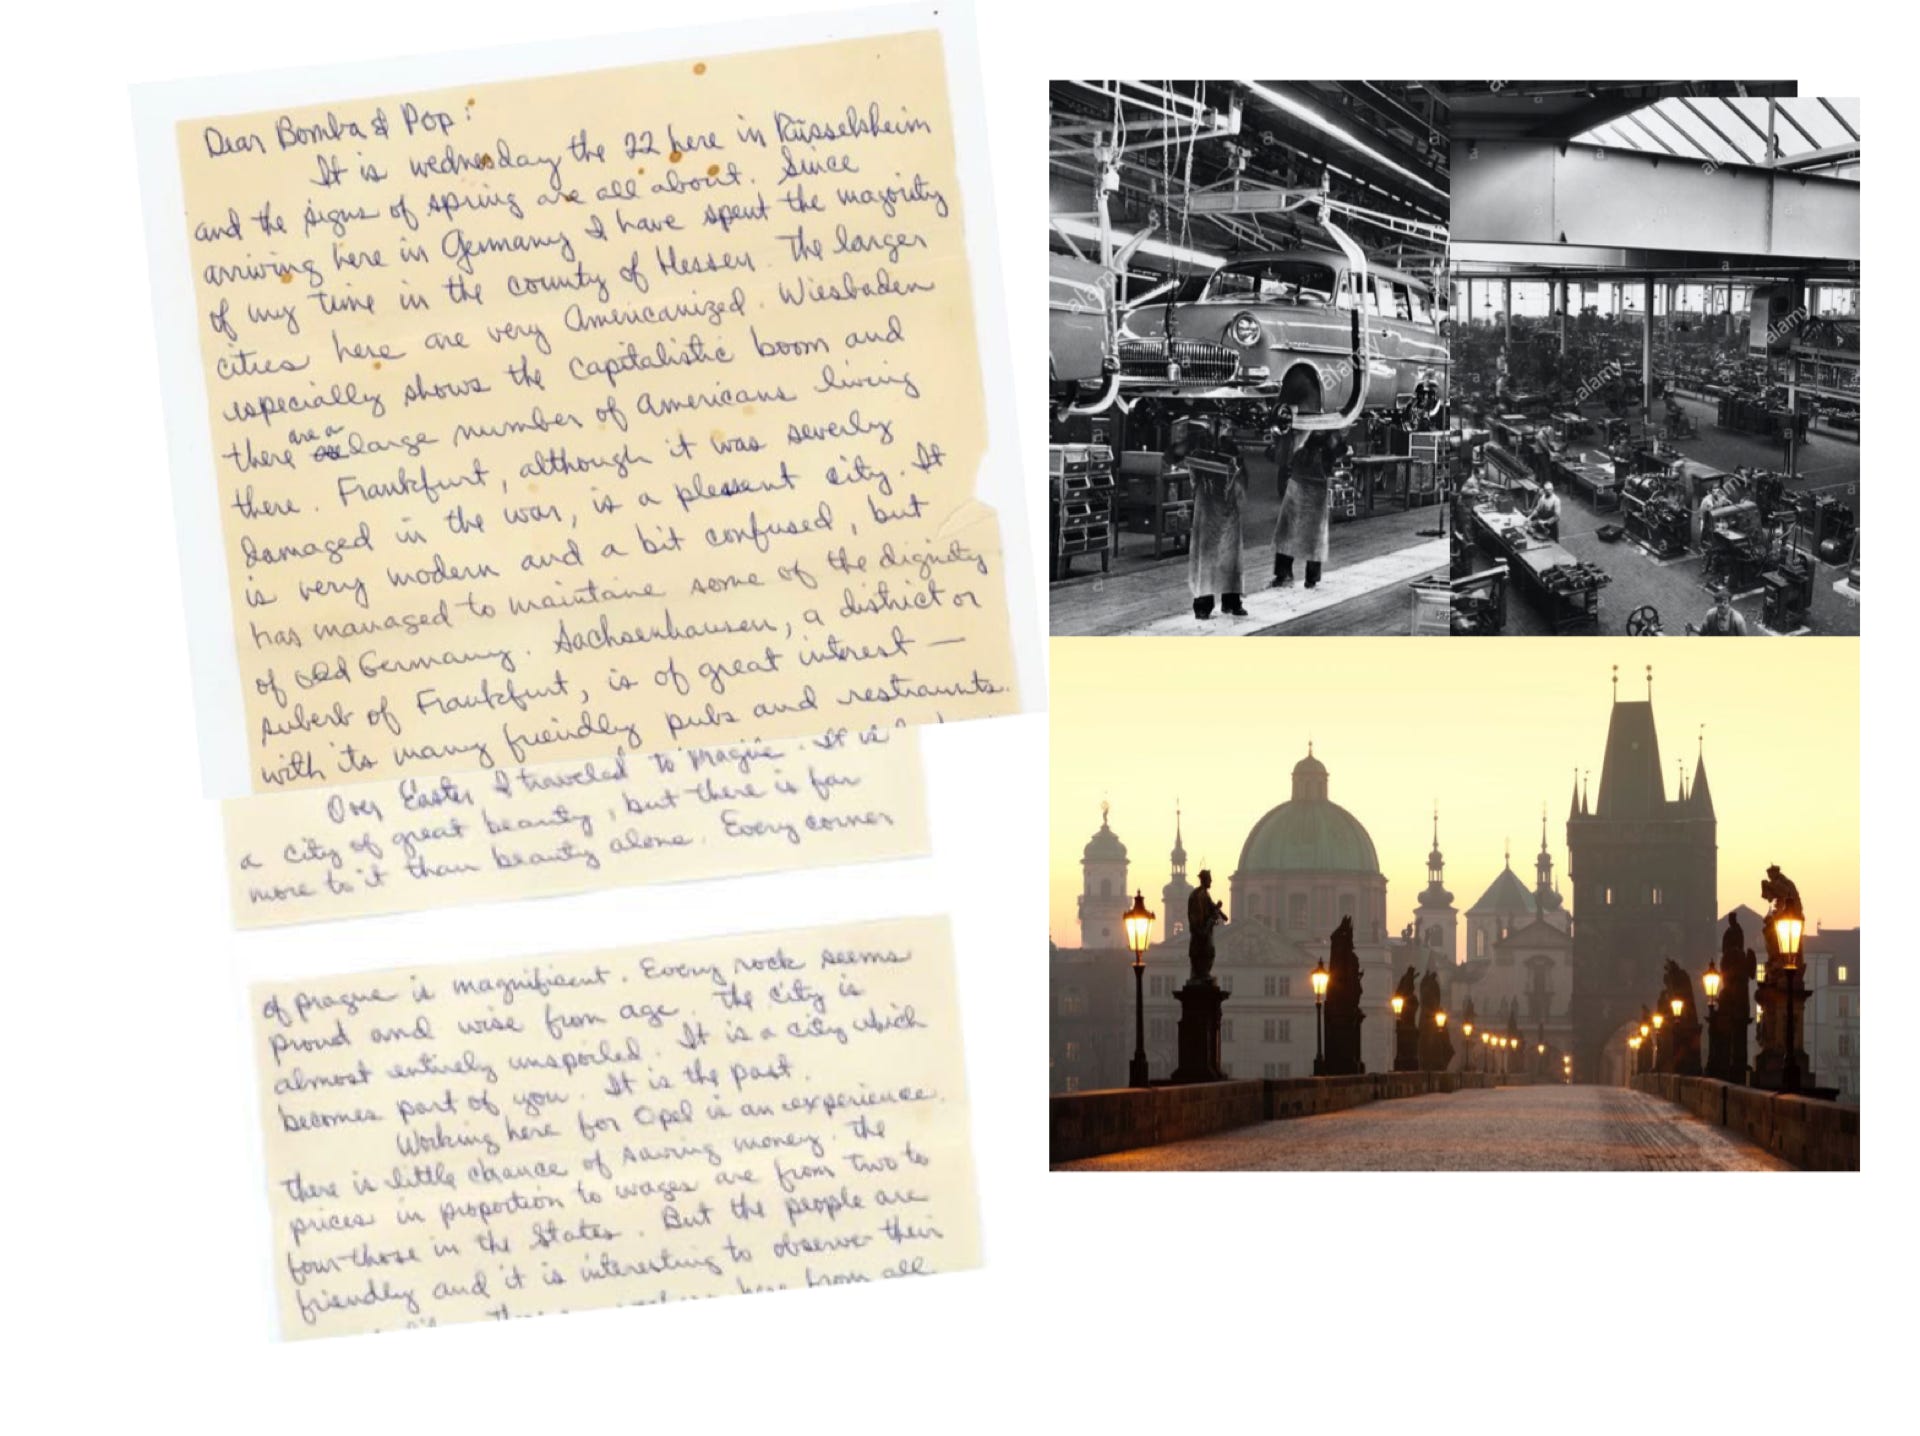 Dear Bomba & Pop:
It is wednesday the 22 here in Rüsselsheim
and the signs of spring are all about. Since
arriving here in Germany I have spent the majority
of my time in the county of Hessen. The larger
cities here are very Americanized. Wiesbaden
especially shows the capitalistic boom and
there are a large number of Americans living
there. Frankfurt, although it was severly
damaged in the war, is a pleasent city. It
is very modern and a bit confused, but
has managed to maintaine some of the dignity
of old Germany. Sachsenhausen, a district or
suberb of Frankfurt, is of great interest —
with its many friendly pubs and restraunts.
Over Easter I traveled to Prague. It is
a city of great beauty, but there is far
more to it than beauty alone. Every corner
of prague is magnificent. Every rock seems
proud and wise from age. The city is
almost entirely unspoiled. It is a city which
becomes part of you. It is the past.
Working here for Opel is an experience.
There is little chance of saving money. The
prices in proportion to wages are from two to
four those in the States. But the people are
friendly and it is interesting to observe their
here from all
alamy
alamy
alamy
alamy
alamy
alamy